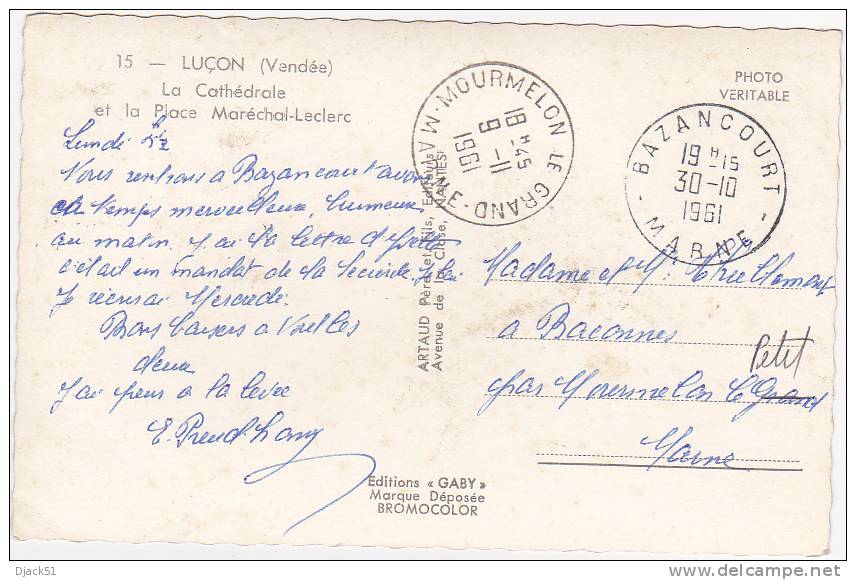 15 — LUÇON (Vendée)
La Cathédrale
et la Place Maréchal-Leclerc
PHOTO
VERITABLE
MOURMELON LE GRAND - MARNE -
18 H 45
9 -11
1961
BAZANCOURT
19 H 15
30-10
1961
- MARNE -
Lundi
Nous rentrons a Bazancourt avons
temps merveilleux, brumeux
au matin. J'ai la lettre d'Yvette
c'était un mandat de la Sécurité
Je reviens Mercredi.
Bons baisers a Vous les
deux
J'ai peur a la levée
E. Preud'h
ARTAUD Père et Fils, Editeurs
Avenue de la Close, NANTES
Madame et Mr
a Baconnes
par Mourmelon le Grand
Petit
Marne
Editions « GABY »
Marque Déposée
BROMOCOLOR
Djack51
delcampe.net